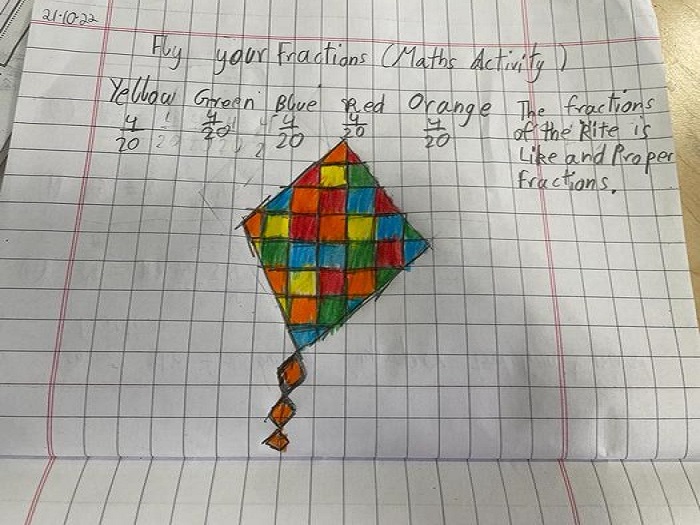 21-10-22
Fly your Fractions (Maths Activity)
Yellow Green Blue Red Orange
4/20 4/20 4/20 4/20 4/20
The fractions
of the Kite is
Like and Proper
Fractions.